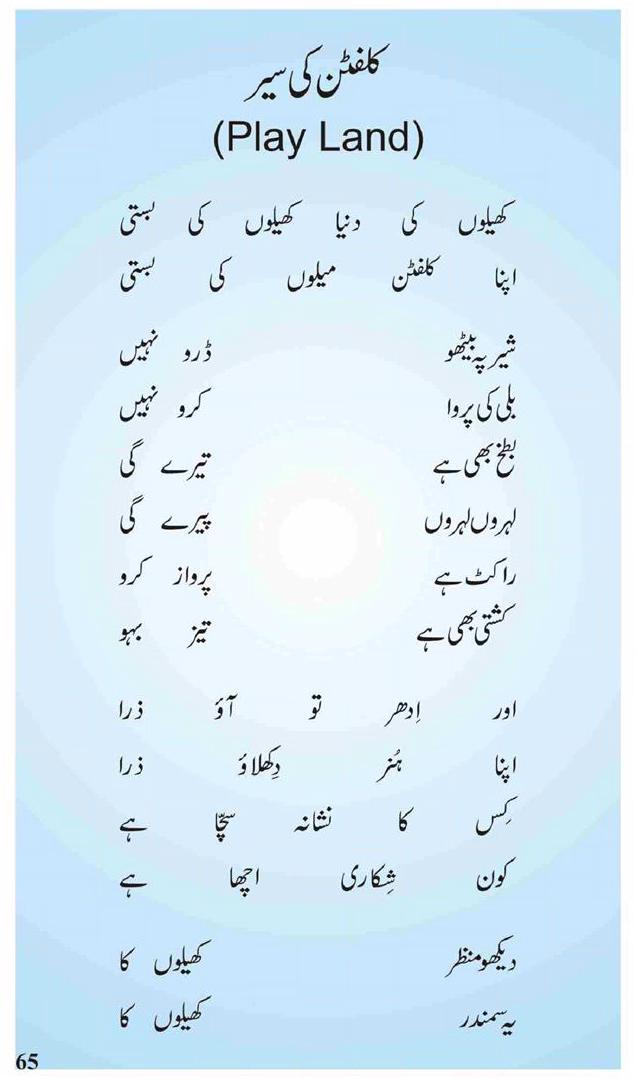 کلفٹن کی سیر
(Play Land)
کھیلوں کی دنیا کھیلوں کی بستی
اپنا کلفٹن میلوں کی بستی
شیر پہ بیٹھو ڈرو نہیں
بلی کی پروا کرو نہیں
بطخ بھی ہے تیرے گی
لہروں لہروں پیرے گی
راکٹ ہے پرواز کرو
کشتی بھی ہے تیز بہو
اور اِدھر تو آؤ ذرا
اپنا ہُنر دِکھلاؤ ذرا
کِس کا نشانہ سچّا ہے
کون شِکاری اچھا ہے
دیکھو منظر کھیلوں کا
یہ سمندر کھیلوں کا
65